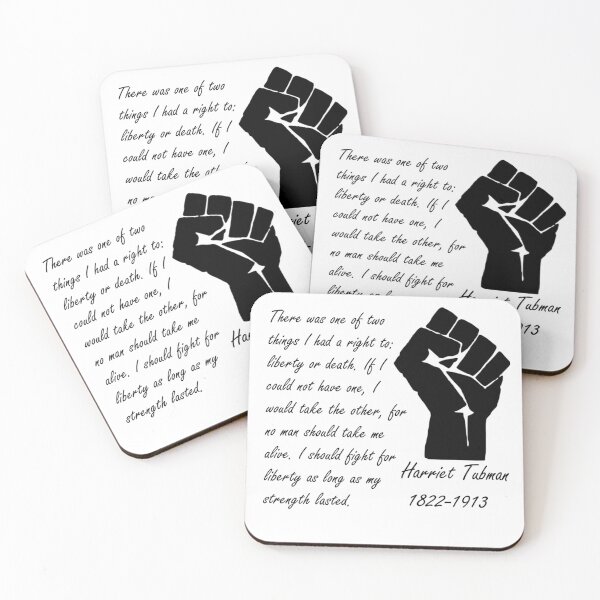 There was one of two
things I had a right to:
liberty or death. If I
could not have one, I
would take the othe
no m
riet
There was one of two
things I had a right to:
liberty or death. If I
could not have one, I
would take the other, for
no man should take me
alive. I should fight for
liberty as long
Harriet Tubman
913
There was one of two
things I had a right to:
liberty or death. If I
could not have one, I
would take the other, for
no man should take me
alive. I should fight for
liberty as long as my
strength lasted.
Har
There was one of two
things I had a right to:
liberty or death. If I
could not have one, I
would take the other, for
no man should take me
alive. I should fight for
liberty as long as my
strength lasted.
Harriet Tubman
1822-1913